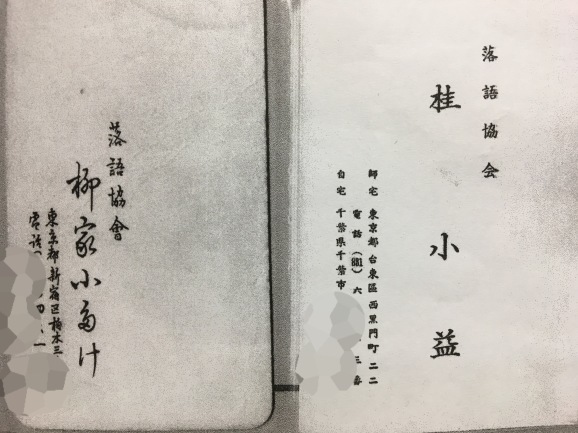 落語協会
桂小益
師宅 東京都台東區西黒門町二二
電話（831）六 三番
自宅 千葉県千葉市
落語協會
柳家小多け
東京都新宿区柏木三
電話